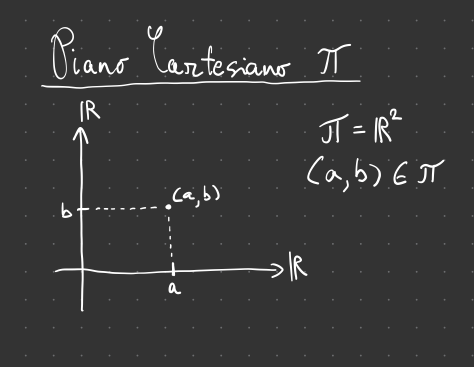 Piano Cartesiano π
ℝ
π = ℝ²
(a,b) ∈ π
(a,b)
b
ℝ
a